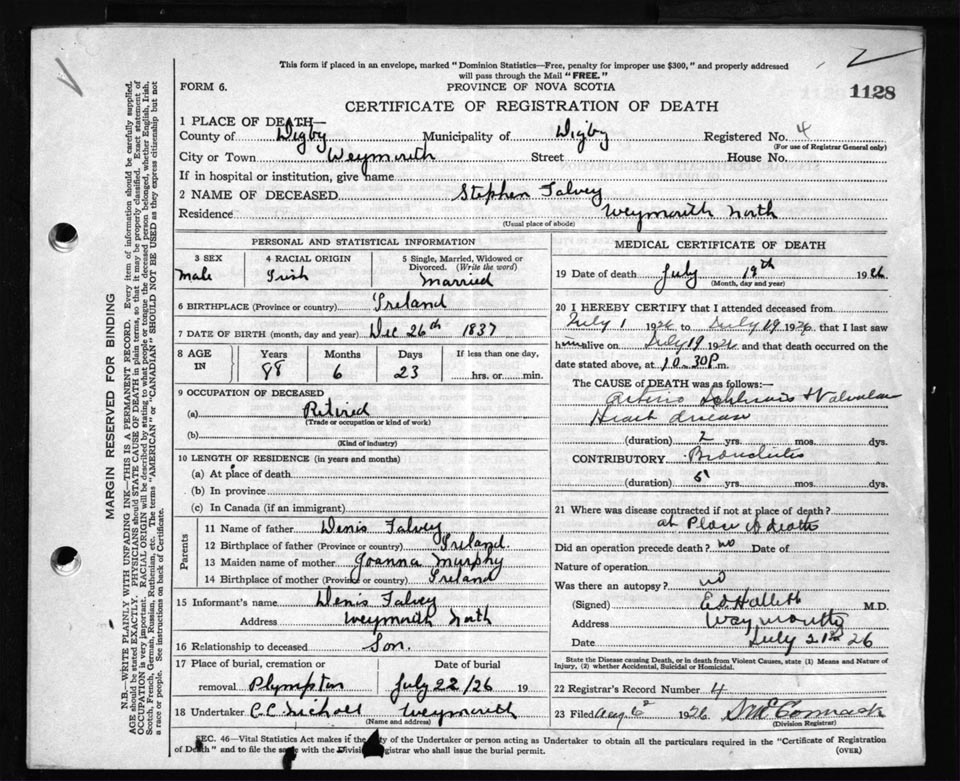 This form if placed in an envelope, marked "Dominion Statistics—Free, penalty for improper use $300," and properly addressed
will pass through the Mail "FREE."
FORM 6. PROVINCE OF NOVA SCOTIA 1128
CERTIFICATE OF REGISTRATION OF DEATH
1 PLACE OF DEATH—
County of Digby Municipality of Digby Registered No. 4
(For use of Registrar General only)
City or Town Weymouth Street House No.
If in hospital or institution, give name
2 NAME OF DECEASED Stephen Falvey
Residence Weymouth North
(Usual place of abode)
PERSONAL AND STATISTICAL INFORMATION
3 SEX 4 RACIAL ORIGIN 5 Single, Married, Widowed or Divorced. (Write the word)
Male Irish Married
6 BIRTHPLACE (Province or country) Ireland
7 DATE OF BIRTH (month, day and year) Dec 26th 1837
8 AGE IN Years Months Days If less than one day,
88 6 23 hrs. or min.
9 OCCUPATION OF DECEASED
(a) Retired
(Trade or occupation or kind of work)
(b)
(Kind of industry)
10 LENGTH OF RESIDENCE (in years and months)
(a) At place of death
(b) In province
(c) In Canada (if an immigrant)
Parents
11 Name of father Denis Falvey
12 Birthplace of father (Province or country) Ireland.
13 Maiden name of mother Joanna Murphy
14 Birthplace of mother (Province or country) Ireland
15 Informant's name Denis Falvey
Address Weymouth North
16 Relationship to deceased Son.
17 Place of burial, cremation or Date of burial
removal Plympton July 22/26 19
18 Undertaker C.C. Nicholl Weymouth
(Name and address)
MEDICAL CERTIFICATE OF DEATH
19 Date of death July 19th 1926
(Month, day and year)
20 I HEREBY CERTIFY that I attended deceased from
July 1 1926 to July 19 1926, that I last saw
him alive on July 19 1926 and that death occurred on the
date stated above, at 10.30 P.m.
The CAUSE OF DEATH was as follows:—
Arterio Sclerosis + Valvular
Heart disease
(duration) 2 yrs. mos. dys.
CONTRIBUTORY Bronchitis
(duration) 5 yrs. mos. dys.
21 Where was disease contracted if not at place of death?
at Place of death
Did an operation precede death? no Date of
Nature of operation
Was there an autopsy? no
(Signed) E.D. Hallett M.D.
Address Weymouth
Date July 21st 26
State the Disease causing Death, or in death from Violent Causes, state (1) Means and Nature of
Injury, (2) whether Accidental, Suicidal or Homicidal.
22 Registrar's Record Number 4
23 Filed Aug 6 1926 McCormack
(Division Registrar)
SEC. 46—Vital Statistics Act makes it the duty of the Undertaker or person acting as Undertaker to obtain all the particulars required in the "Certificate of Registration
of Death" and to file the same with the Division Registrar who shall issue the burial permit. (OVER)
MARGIN RESERVED FOR BINDING
N.B.—WRITE PLAINLY WITH UNFADING INK—THIS IS A PERMANENT RECORD. Every item of information should be carefully supplied.
AGE should be stated EXACTLY. PHYSICIANS should STATE CAUSE OF DEATH in plain terms, so that it may be properly classified. Exact statement of
OCCUPATION is very important. RACIAL ORIGIN will be described by stating to what people or tongue the deceased person belonged, whether English, Irish,
Scotch, French, German, Russian, Ruthenian, etc. The terms "AMERICAN" or "CANADIAN" SHOULD NOT BE USED as they express citizenship but not
a race or people. See instructions on back of Certificate.